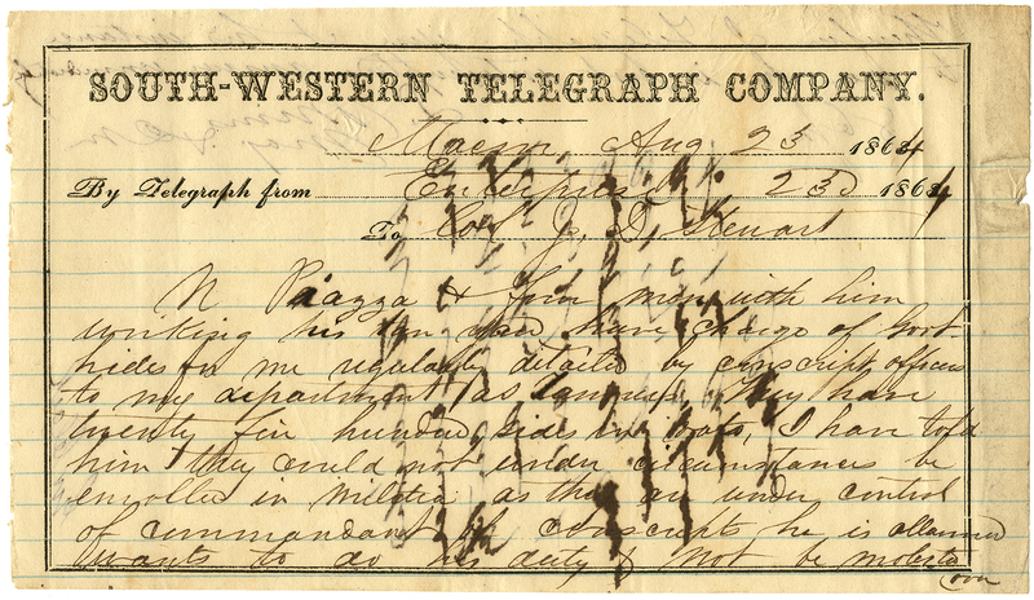 SOUTH-WESTERN TELEGRAPH COMPANY.
Macon, Aug 23 1864
By Telegraph from Enterprise 23d 1864
To Col J, D, Stewart
N Piazza & four men with him
working his tan yard have charge of Govt
hides on me regularly detailed by conscript officers
to my department as Tanners, They have
twenty five hundred sides in vats, I have told
him they could not under circumstances be
enrolled in Militia as they are under control
of commandant of conscripts he is alarmed
wants to do his duty & not be molested